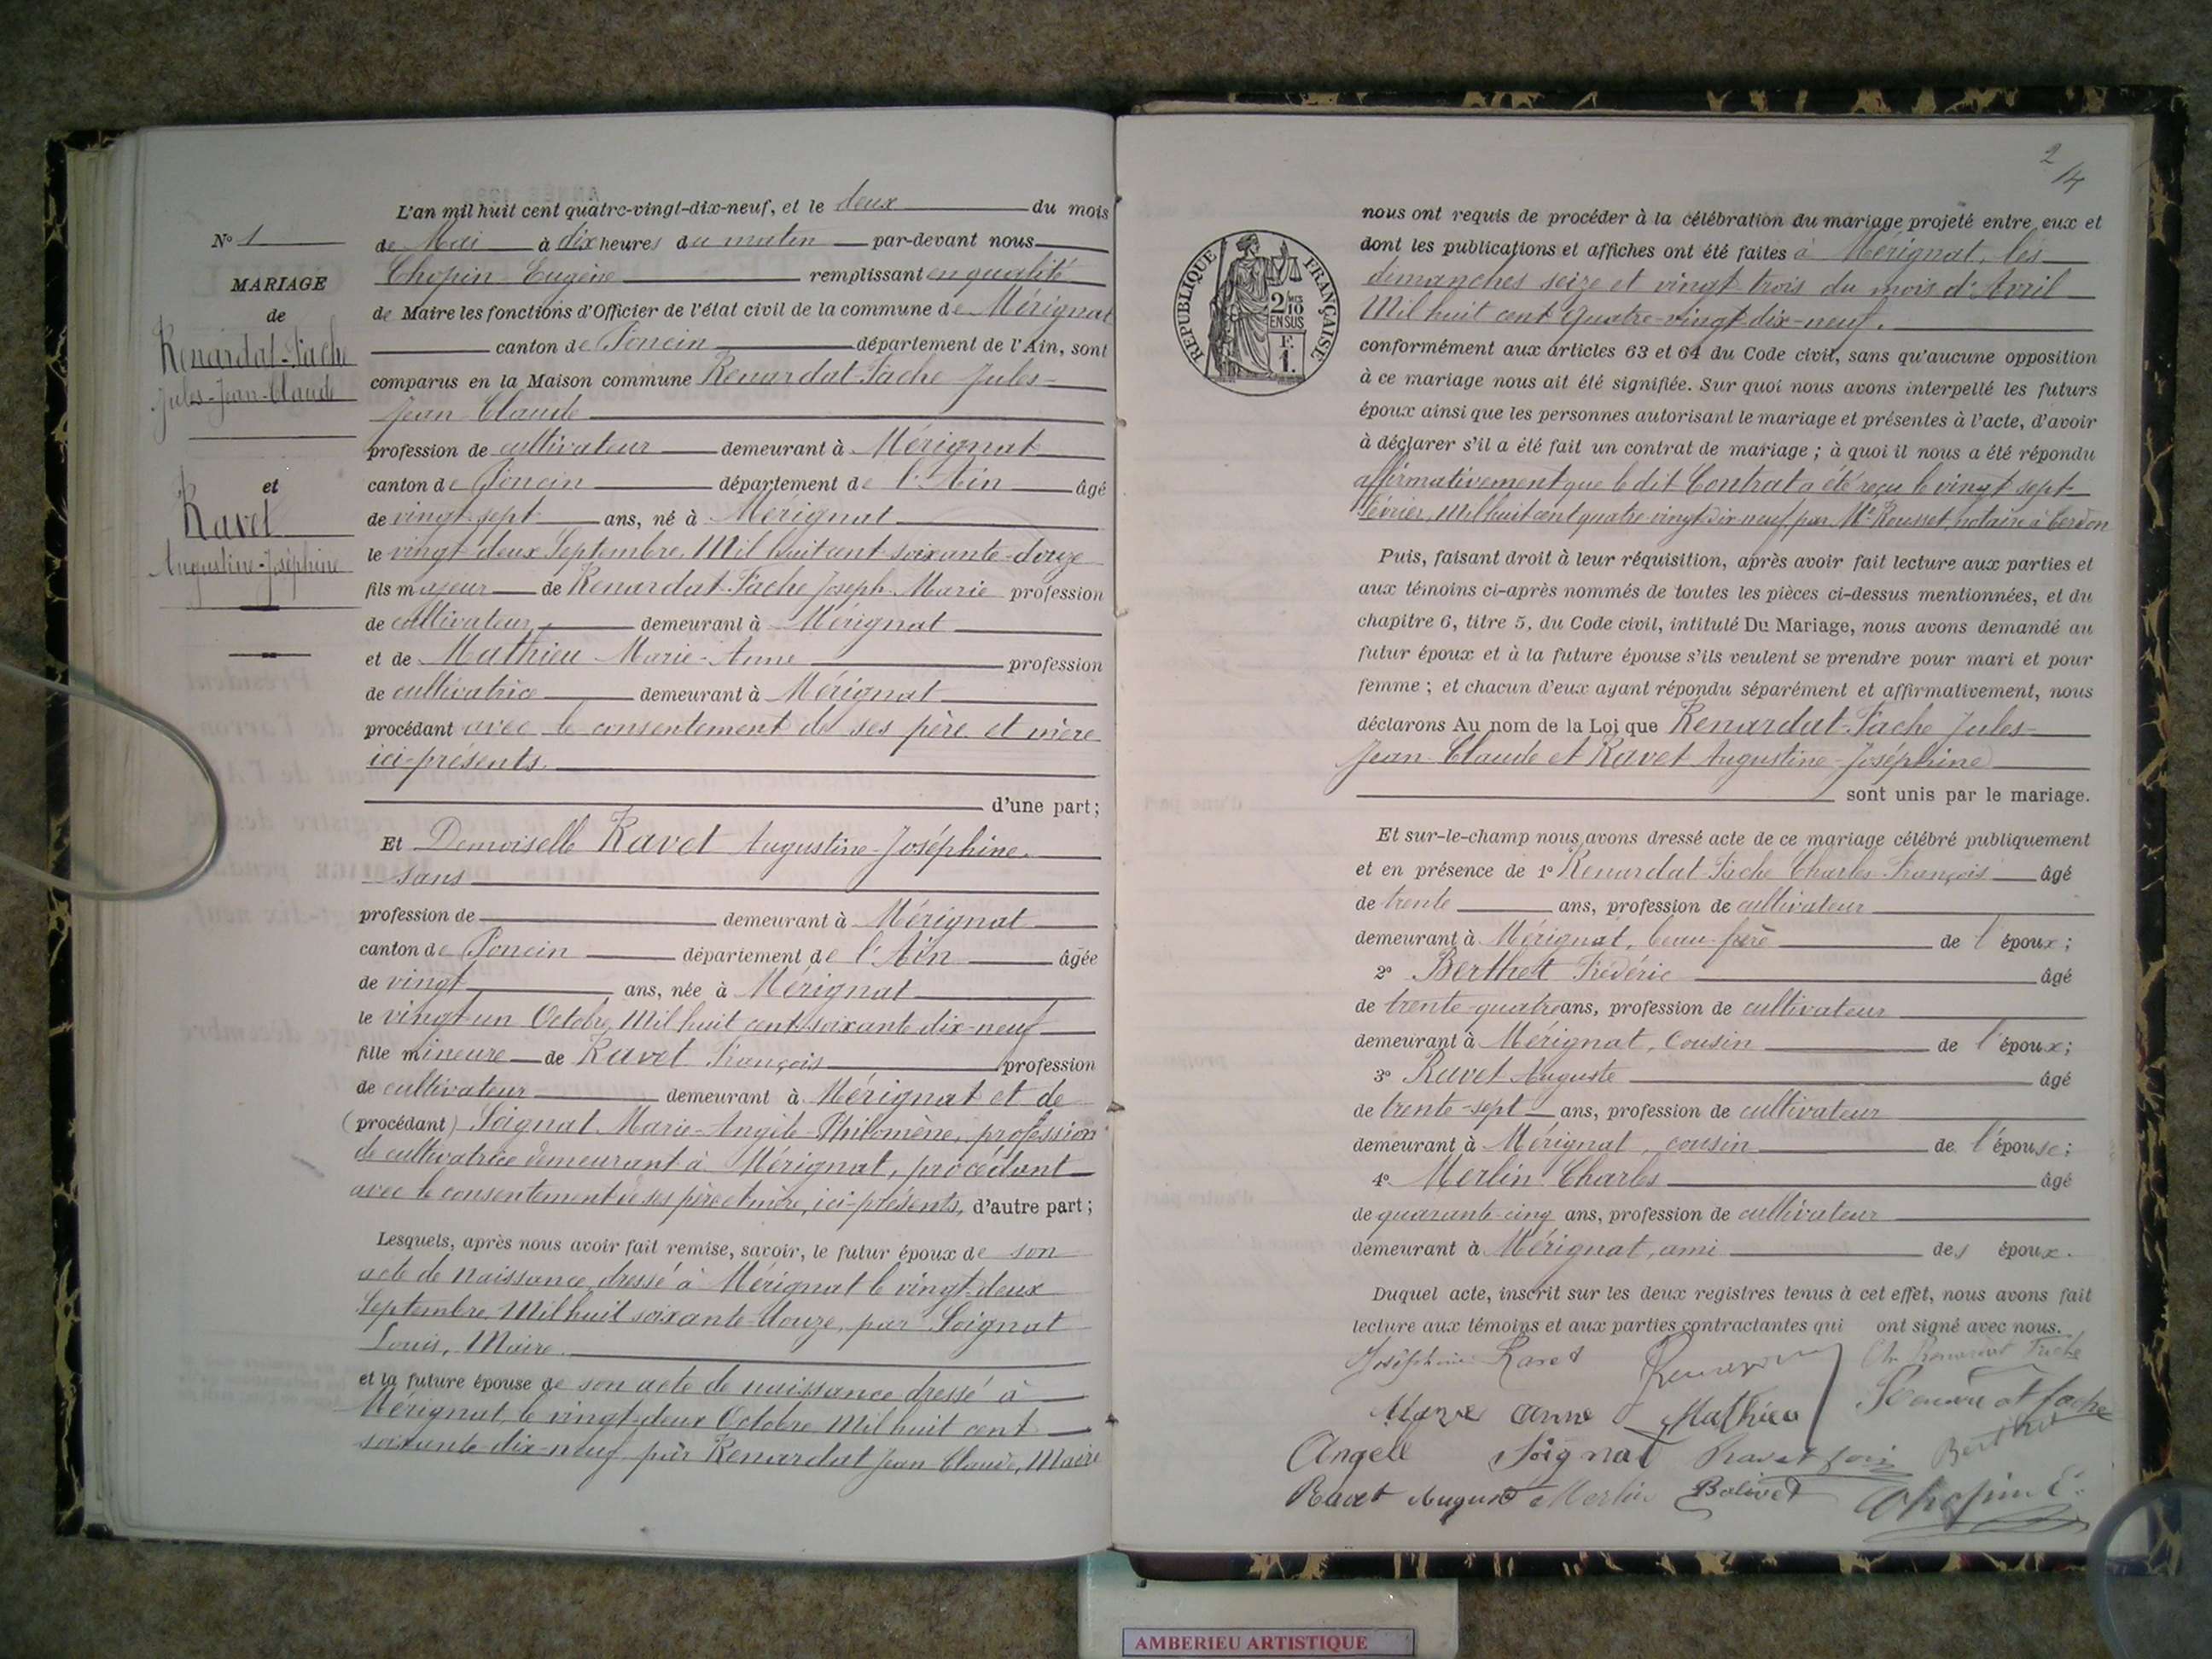 N° 1
MARIAGE
de
Renardat-Fache
Jules-Jean-Claude
et
Ravet
Augustine-Joséphine
L'an mil huit cent quatre-vingt-dix-neuf, et le deux du mois
de Mai à dix heures du matin par-devant nous
Chopin Eugène remplissant en qualité
de Maire les fonctions d'Officier de l'état civil de la commune de Mérignat
canton de Poncin département de l'Ain, sont
comparus en la Maison commune Renardat-Fache Jules-
Jean Claude
profession de cultivateur demeurant à Mérignat
canton de Poncin département de l'Ain âgé
de vingt-sept ans, né à Mérignat
le vingt deux Septembre Mil huit cent soixante-douze
fils majeur de Renardat-Fache Joseph-Marie profession
de cultivateur demeurant à Mérignat
et de Mathieu Marie-Anne profession
de cultivatrice demeurant à Mérignat
procédant avec le consentement de ses père et mère
ici-présents.
d'une part;
Et Demoiselle Ravet Augustine-Joséphine.
sans
profession de demeurant à Mérignat
canton de Poncin département de l'Ain âgée
de vingt ans, née à Mérignat
le vingt-un Octobre Mil huit cent soixante dix-neuf
fille mineure de Ravet François profession
de cultivateur demeurant à Mérignat et de
(procédant) Soignat Marie-Angèle-Philomène, profession
de cultivatrice demeurant à Mérignat, procédant
avec le consentement de ses père et mère, ici-présents, d'autre part;
Lesquels, après nous avoir fait remise, savoir, le futur époux de son
acte de naissance, dressé à Mérignat le vingt-deux
Septembre Mil huit soixante-douze, par Soignat
Louis, Maire.
et la future épouse de son acte de naissance dressé à
Mérignat, le vingt-deux Octobre Mil huit cent
soixante-dix-neuf par Renardat Jean-Claude, Maire
2
14
REPUBLIQUE FRANÇAISE
2/10
EN SUS
F.
1.
nous ont requis de procéder à la célébration du mariage projeté entre eux et
dont les publications et affiches ont été faites à Mérignat, les
dimanches seize et vingt-trois du mois d'Avril
Mil huit cent Quatre-vingt-dix-neuf.
conformément aux articles 63 et 64 du Code civil, sans qu'aucune opposition
à ce mariage nous ait été signifiée. Sur quoi nous avons interpellé les futurs
époux ainsi que les personnes autorisant le mariage et présentes à l'acte, d'avoir
à déclarer s'il a été fait un contrat de mariage; à quoi il nous a été répondu
affirmativement que le dit Contrat a été reçu le vingt sept
Février Mil huit cent quatre-vingt-dix-neuf par Me Rousset, notaire à Cerdon
Puis, faisant droit à leur réquisition, après avoir fait lecture aux parties et
aux témoins ci-après nommés de toutes les pièces ci-dessus mentionnées, et du
chapitre 6, titre 5, du Code civil, intitulé Du Mariage, nous avons demandé au
futur époux et à la future épouse s'ils veulent se prendre pour mari et pour
femme; et chacun d'eux ayant répondu séparément et affirmativement, nous
déclarons Au nom de la Loi que Renardat-Fache Jules-
Jean-Claude et Ravet Augustine-Joséphine
sont unis par le mariage.
Et sur-le-champ nous avons dressé acte de ce mariage célébré publiquement
et en présence de 1° Renardat-Fache Charles-François âgé
de trente ans, profession de cultivateur
demeurant à Mérignat, beau-frère de l'époux;
2° Berthet Frédéric âgé
de trente-quatre ans, profession de cultivateur
demeurant à Mérignat, Cousin de l'époux;
3° Ravet Auguste âgé
de trente-sept ans, profession de cultivateur
demeurant à Mérignat, cousin de l'épouse;
4° Merlin Charles âgé
de quarante-cinq ans, profession de cultivateur
demeurant à Mérignat, ami des époux.
Duquel acte, inscrit sur les deux registres tenus à cet effet, nous avons fait
lecture aux témoins et aux parties contractantes qui ont signé avec nous.
Joséphine Ravet
Marie anne Mathieu
Angele Soignat Ravet Berthet
Ravet August Merlin Bolivet Chopin E.
AMBERIEU ARTISTIQUE